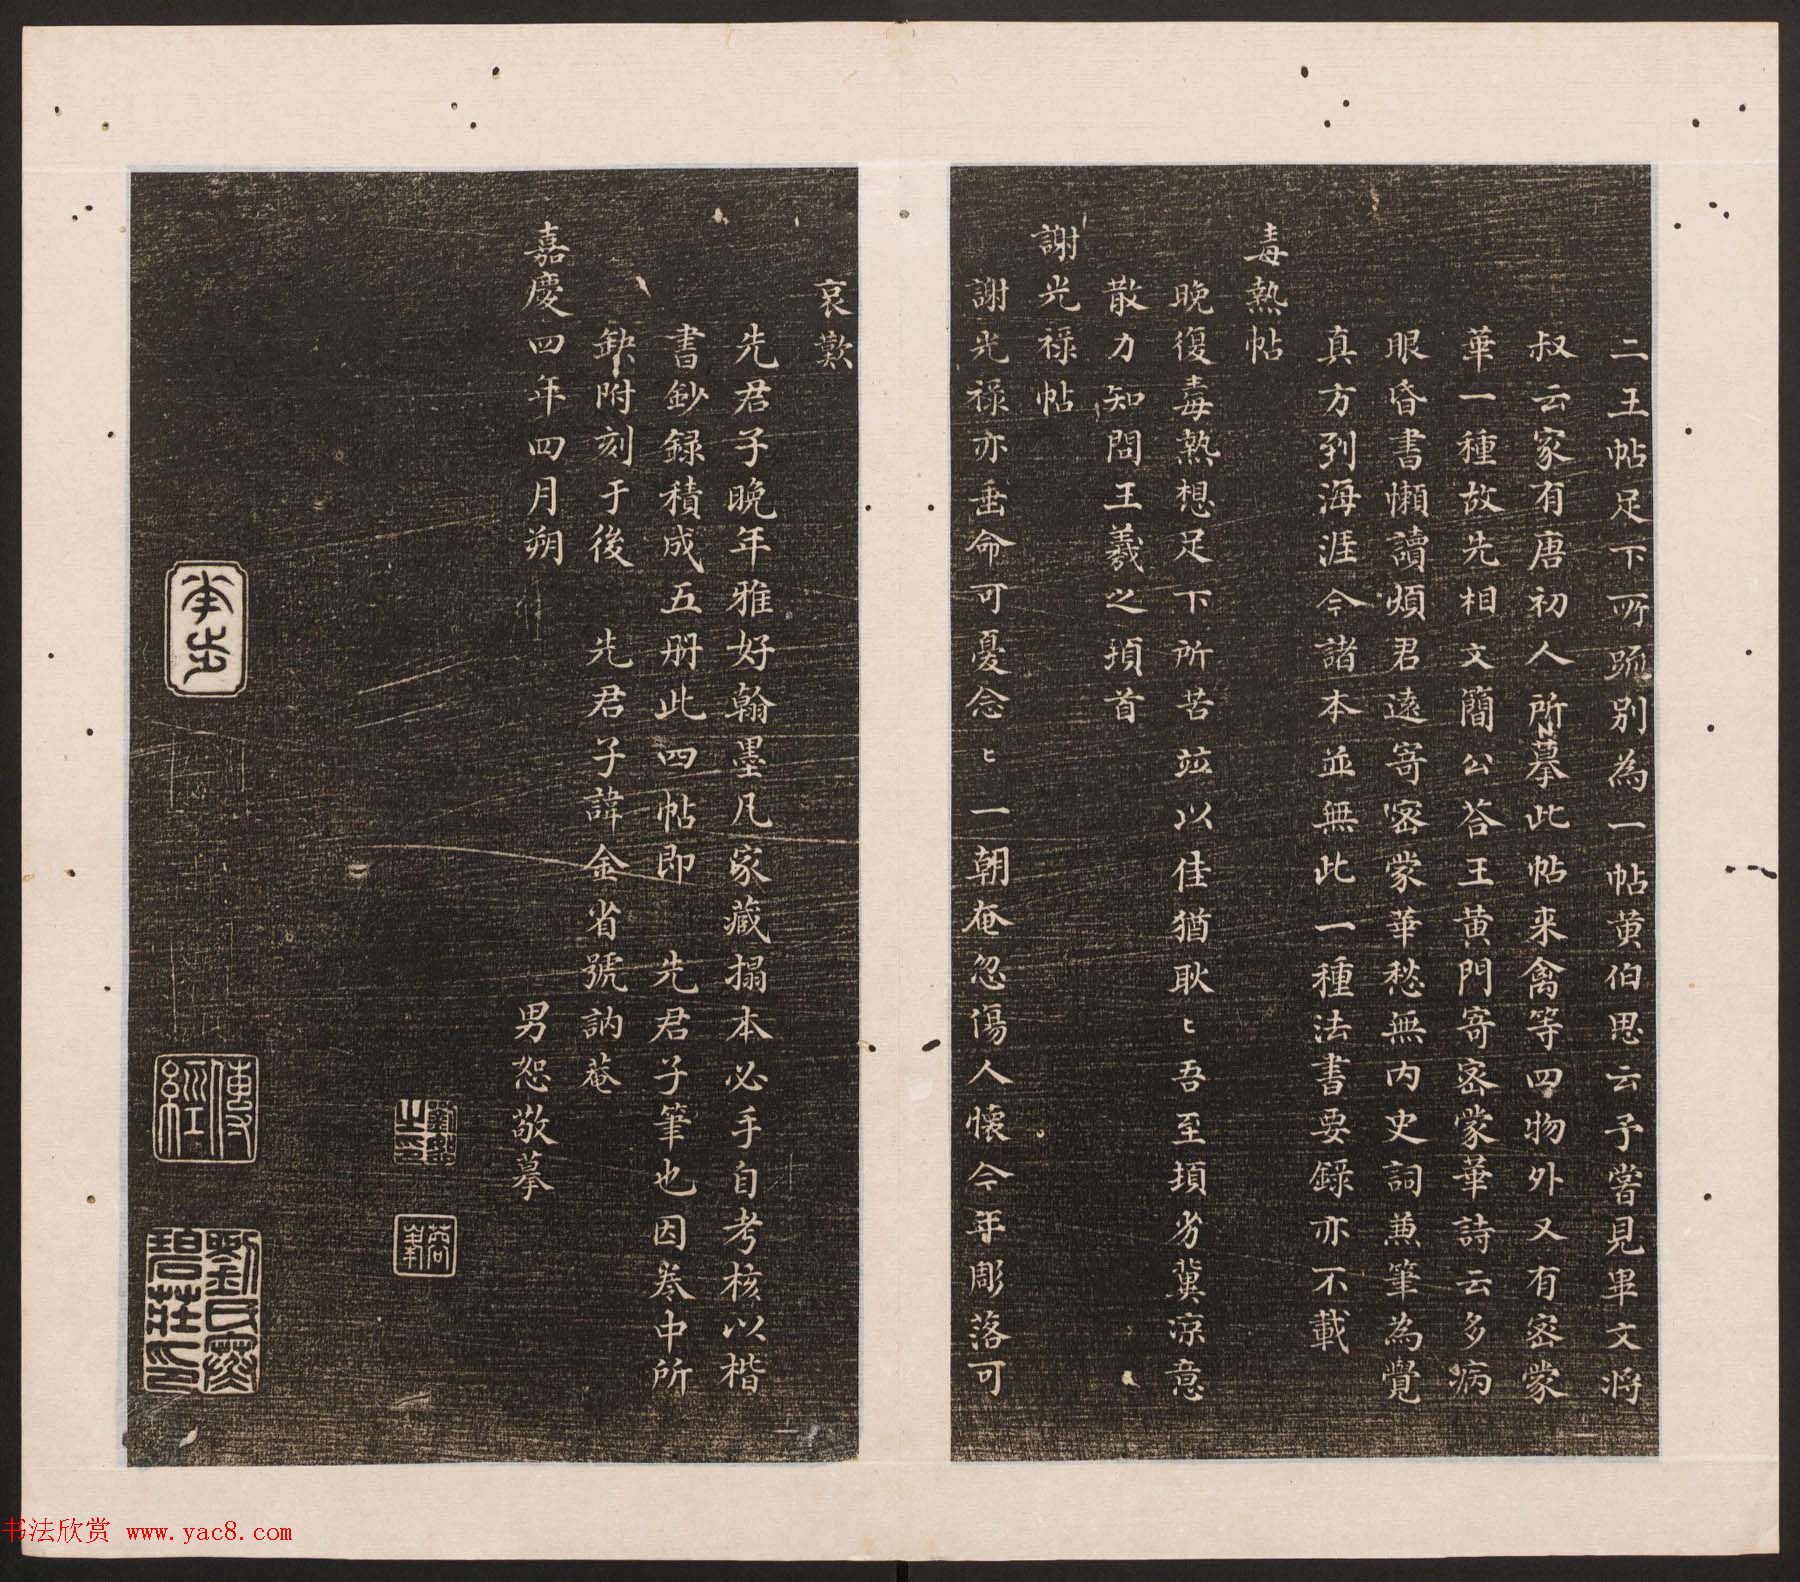 二王帖足下所疏別為一帖黃伯思云予嘗見畢文將
叔云家有唐初人所摹此帖來禽等四物外又有密蒙
華一種故先相文簡公荅王黃門寄密蒙華詩云多病
眼昏書懶讀煩君遠寄密蒙華愁無內史詞兼筆為覺
真方到海涯今諸本並無此一種法書要錄亦不載
毒熱帖
晚復毒熱想足下所苦竝以佳猶耿〻吾至頓劣冀涼意
散力知問王羲之頓首
謝光祿帖
謝光祿亦垂命可憂念〻一朝奄忽傷人懷今年彫落可
哀歎
先君子晚年雅好翰墨凡家藏搨本必手自考核以楷
書鈔錄積成五冊此四帖即 先君子筆也因卷中所
缺附刻于後 先君子諱金省號訥菴
嘉慶四年四月朔 男恕敬摹
傳經
劉氏寒
碧莊印
书法欣赏 www.yac8.com